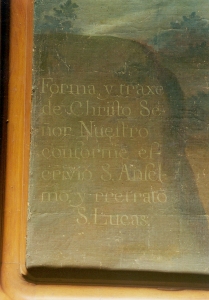 Forma, y traxe
de Christo Se-
ñor Nuestro
conforme es-
crivio S. Ansel-
mo, y rretrato
S. Lucas,